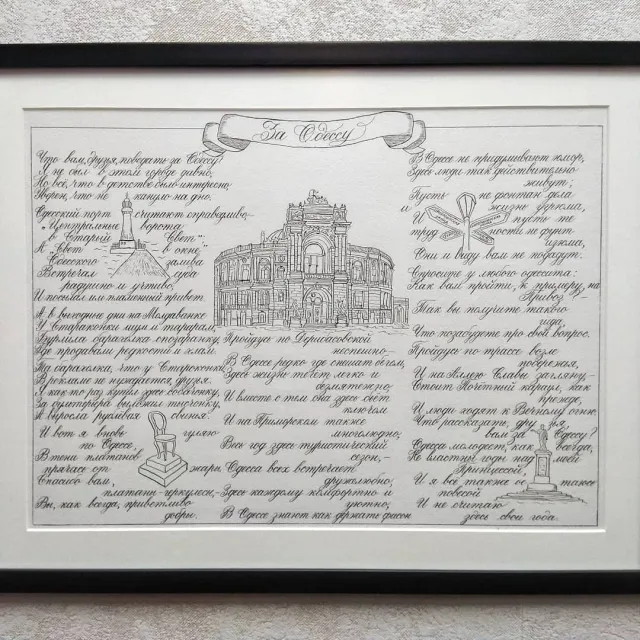 За Одессу
Что вам, друзья, поведать за Одессу?
Я не был в этом городе давно,
Но всё, что в детстве было интересно,
Уверен, что не кануло на дно.
Одесский порт считают справедливо
"Центральные ворота
в Старый Свет".
А Свет в окне
Одесского залива
Встречал суда
радушно и учтиво,
И посылал им пламенный привет.
А в выходные дни на Молдаванке
У Староконки шум и тарарам,
Бурлила барахолка спозаранку,
Где продавали редкость и хлам.
Та барахолка, что у Староконки
В рекламе не нуждается, друзья.
Я как-то раз купил здесь собачонку,
За бультерьера выложил тысчонку,
А выросла рухлявая свинья.
И вот я вновь гуляю
по Одессе,
В тени платанов
прячась от жары.
Спасибо вам,
платаны-циркулеси,-
Вы, как всегда, приветливо
добры.
Пройдусь по Дерибасовской
неспешно,-
В Одессе редко где спешат бегом,
Здесь жизнь течёт легко и
безмятежно,
И вместе с тем она здесь бьёт
ключом
И на Приморском также
многолюдно,
Весь год здесь туристический
сезон,-
Одесса всех встречает
дружелюбно,
Здесь каждому комфортно и
уютно,
В Одессе знают как держать фасон
В Одессе не придумывают юмор,
Здесь люди так действительно
живут;
Пусть не фонтан дела
и жизнь угрюма,
И пусть те
трудности не фунт
изюма,
Они и виду вам не подадут.
Спросите у любого одессита:
Как вам пройти, к примеру, на
Привоз?-
Так вы получите такого
гида,
Что позабудете про свой вопрос.
Пройдусь по трассе возле
побережья,
И на Аллею Славы загляну,-
Стоит Почётный караул, как
прежде,
И люди ходят к Вечному огню.
Что рассказать, друзья,
вам за Одессу?
Одесса молодеет, как всегда,
Не властны годы над моей
Принцессой,
И я всё также ос таюсь
повесой
И не считаю
здесь свои года.